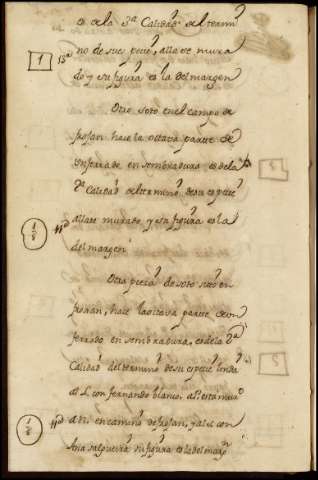 es de la 3ª Calidad del termi
no de su especie, alla de mura
do y su figura es la del margen
1
Otro soto en el campo de
hace la octava parte de
Un ferrado en sembradura es de la
2ª Calidad del termino de su especie
alla de murado, y su figura es la
del margen
1/8
Otra pieza de soto sito en
hace la octava parte de un
ferrado en sembradura, es de la 2ª
Calidad del termino de su especie linda
a L. con fernando blanco, al P. esta mura
a N. en camino de y al S. con
Ana salgueira su figura es la del marg
1/8